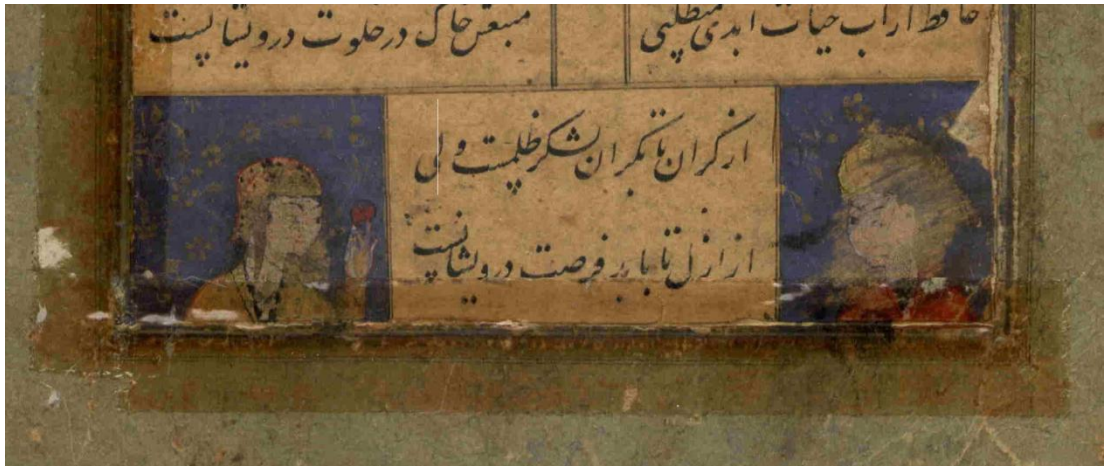 حافظ ار آب حیات ابدی میطلبی
منبعش خاک در خلوت درویشانست
از کران تا بکران لشکر ظلمست ولی
از ازل تا بابد فرصت درویشانست